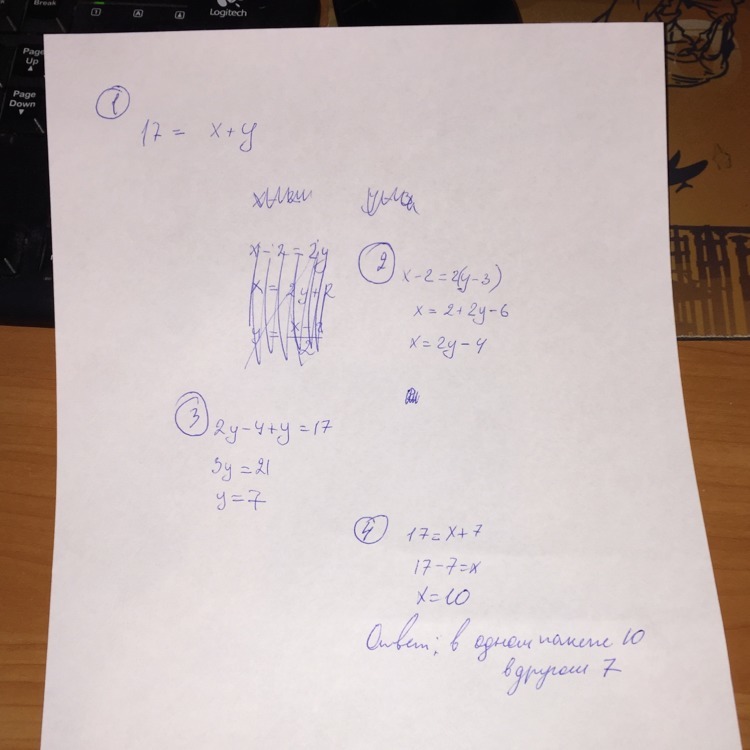 Break
Logitech
Page
Up
Page
Down
1
17 = x + y
x - 2 = 2y
x = 2y + 2
y = x - 2 / 2
2
x - 2 = 2(y - 3)
x = 2 + 2y - 6
x = 2y - 4
3
2y - 4 + y = 17
3y = 21
y = 7
4
17 = x + 7
17 - 7 = x
x = 10
Ответ: в одном пакете 10
в другом 7